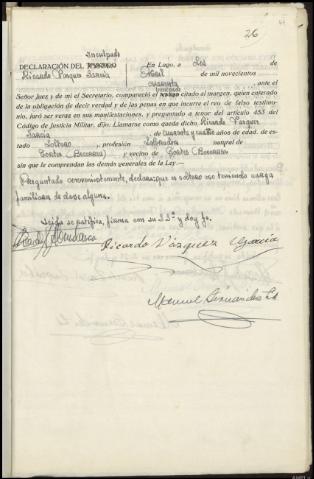 26
inculpado
DECLARACIÓN DEL TESTIGO
Ricardo Vázquez García
En Lugo, a dos de
Abril de mil novecientos
cuarenta, ante el
Señor Juez y de mí el Secretario, compareció el testigo citado al margen, quien enterado
de la obligación de decir verdad y de las penas en que incurre el reo de falso testimo-
nio, juró ser veraz en sus manifestaciones, y preguntado a tenor del artículo 453 del
Código de Justicia Militar, dijo: Llamarse como queda dicho Ricardo Vázquez
García de cuarenta y cuatro años de edad, de es-
tado soltero, profesión labrador natural de
Becerreá y vecino de (Becerreá)
sin que le comprendan las demás generales de la Ley.
Preguntado convenientemente, declara: que es soltero no teniendo cargas
familiares de clase alguna.
se ratifica, firma con su Sª y doy fe.
Ricardo Vázquez García
Manuel Fernández